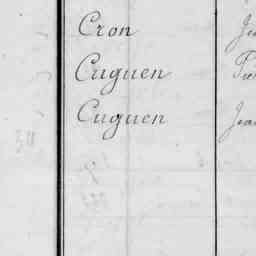 Cron
Cuguen
Cuguen Jean